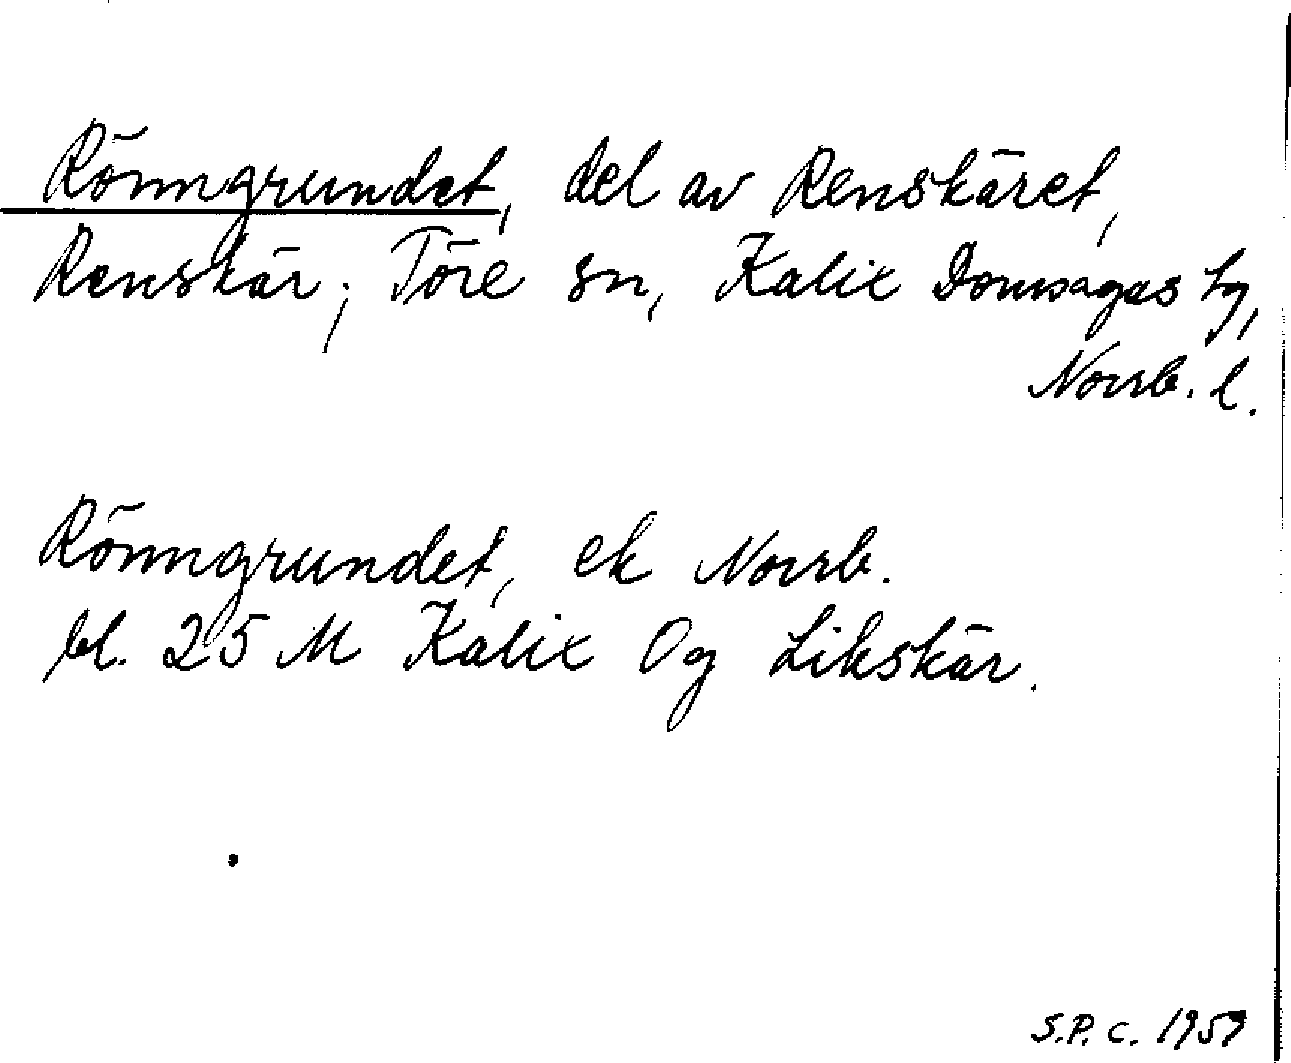 Rönngrundet, del av Renskäret,
Renskär; Töre sn, Kalix Domsagas tg,
Norrb. l.
Rönngrundet, ek Norrb.
bl. 25 M Kalix Og Likskär.
S.P.C. 1959